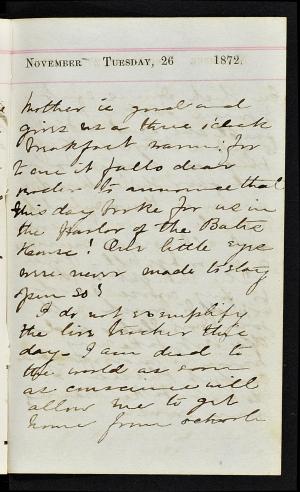 November Tuesday, 26 1872.
Mother is good and
gives us a three o'clock
breakfast warm; for
to me it falls dear
reader to announce that
this day broke for us in
the Parlor of the Bates
House! Our little eyes
were never made to stay
open so!
I do not exemplify
the live teacher these
days. I am dead to
the world as soon
as conscience will
allow me to get
home from school